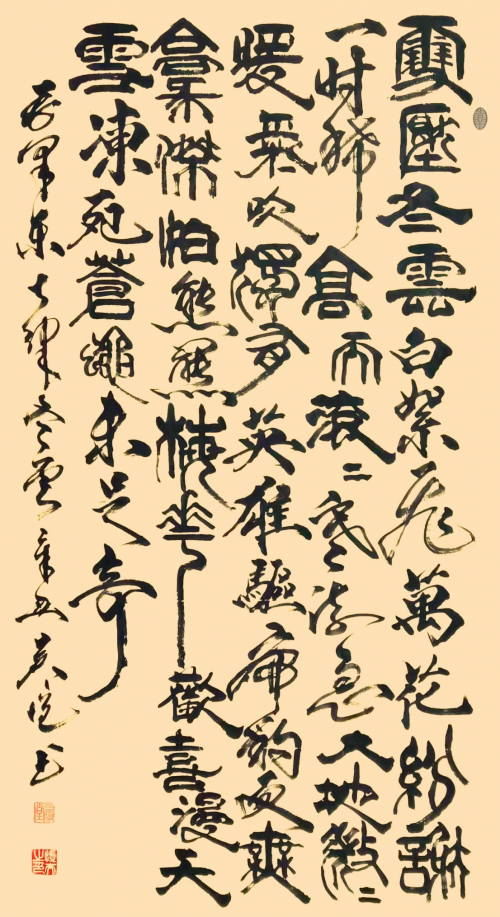 雪壓冬雲白絮飛萬花紛謝
一時稀高天滾〻寒流急大地微〻
暖氣吹獨有英雄驅虎豹更無
豪傑怕熊羆梅花歡喜漫天
雪凍死蒼蠅未足奇
毛澤東七律冬雲辛丑書